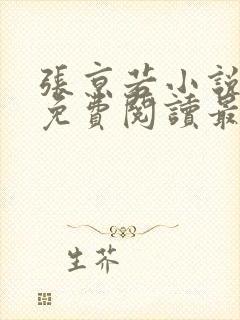 張京若小說
免費閱讀最
生芥